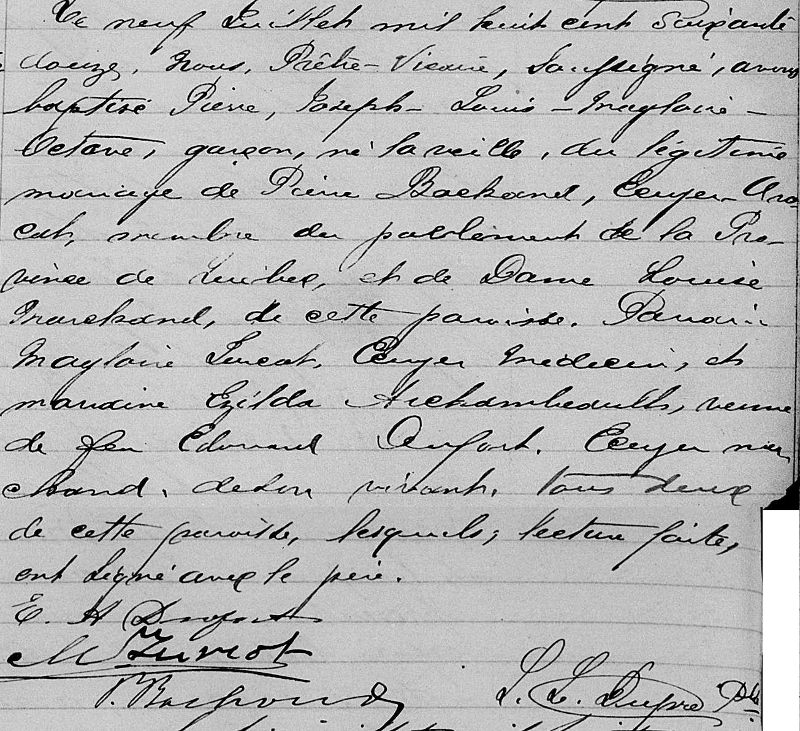 Le neuf Juillet mil huit cent Soixante
douze, Nous, Prêtre-Vicaire, Soussigné, avons
baptisé Pierre, Joseph-Louis-Magloire-
Octave, garçon, né la veille, du légitime
mariage de Pierre Bachand, Ecuyer-Avo-
cat, membre du parlement de la Pro-
vince de Quebec, et de Dame Louise
Marchand, de cette paroisse. Parrain
Magloire Turcot, Ecuyer Medecin, et
marraine Ezilda Archambeault, veuve
de feu Edouard Dufort, Ecuyer mar
chand, de son vivant, tous deux
de cette paroisse, lesquels, lecture faite,
ont signé avec le père.
E. A Dufort
M Turcot
P. Bachand
L. L. Dupré Ptre